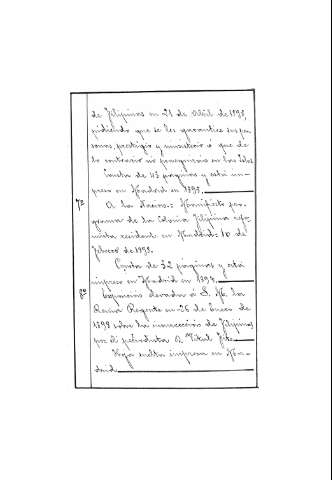 de Filipinas en 21 de Abril de 1898,
pidiendo que se les garantice sus per
sonas, prestigio y ministerio ó que de
lo contrario no permanecerán en las Islas
Consta de 43 páginas y está im-
preso en Madrid en 1898.
7ª A la Nacion: Manifiesto pro-
grama de la Colonia Filipina refor
mista residente en Madrid: 10 de
Febrero de 1898.
Consta de 32 páginas y está
impreso en Madrid en 1898.
8ª Exposición elevada á S. M. la
Reina Regente en 26 de Enero de
1898 sobre la insurrección de Filipinas
por el periodista D. Vital Fité.
Hoja suelta impresa en Ma-
drid.